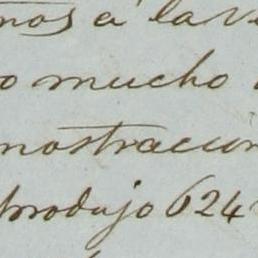 mos á la v
o mucho
mostracion
produjo 624